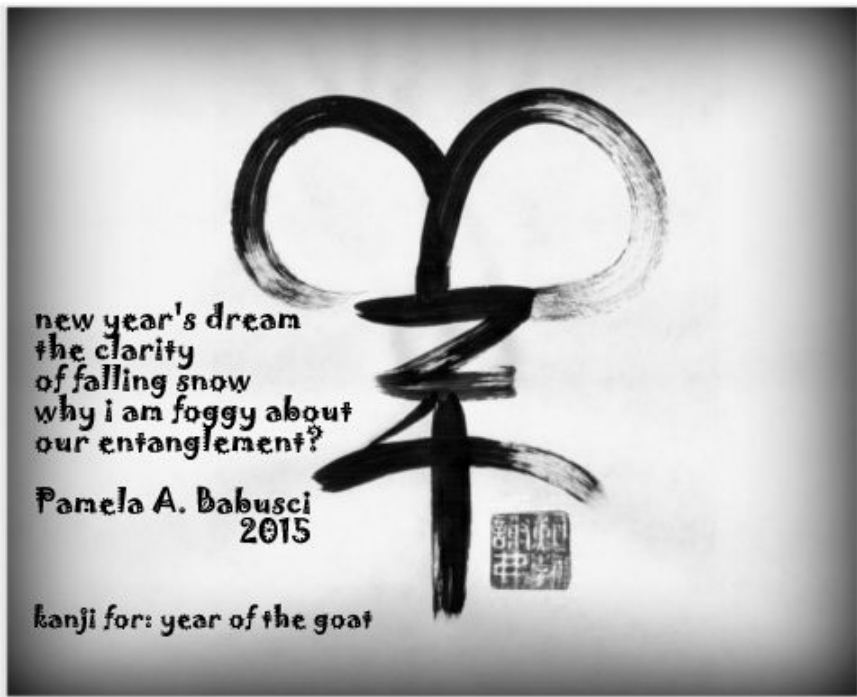 羊
new year's dream
the clarity
of falling snow
why i am foggy about
our entanglement?
Pamela A. Babusci
2015
kanji for: year of the goat